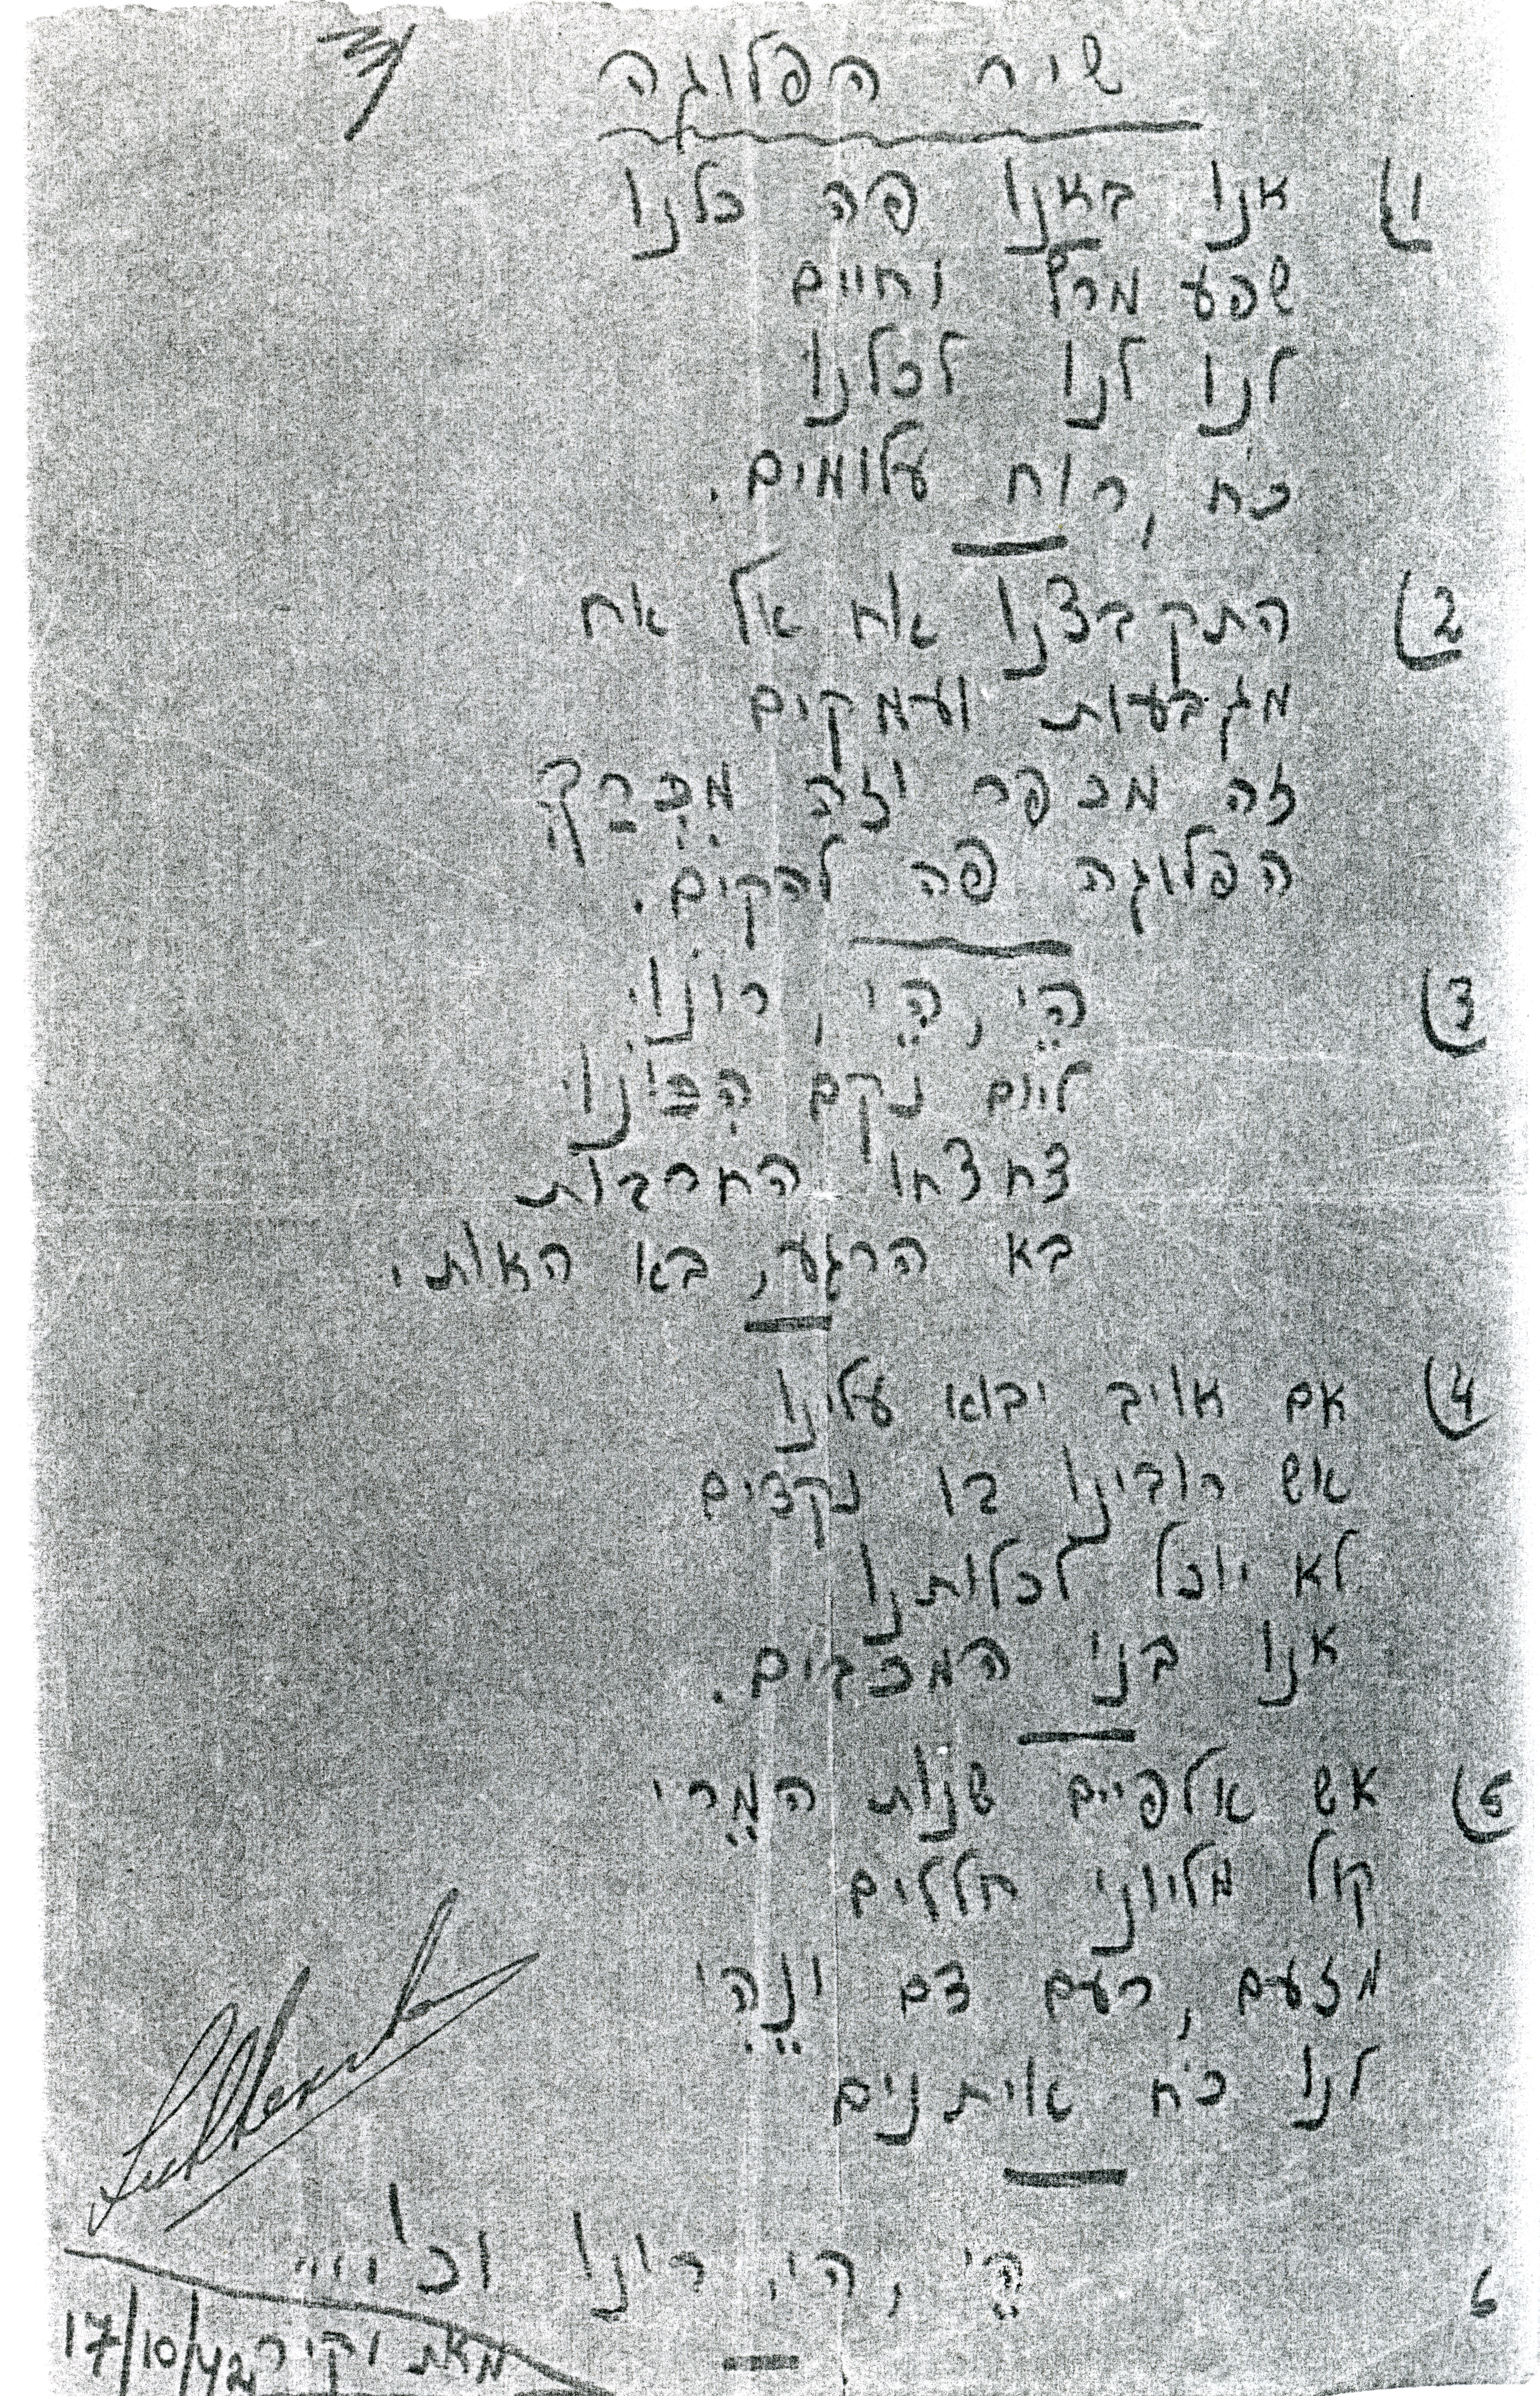 שיר הפלוגה
1) אנו באנו פה כלנו
שפע מרץ וחיים
לנו לנו לכלנו
כח, רוח עלומים.
2) התקבצנו אח אל אח
מגבעות ועמקים
זה מכפר וזה מִכְּרַךְ
הפלוגה פה להקים.
3) הֵי, הֵי, רונּוּ
ליום נקם הִכּוֹנוּ
צחצחו החרבות
בא הרגע, בא האות.
4) אם אויב יבוא עלינו
אש רובינו בו נקדים
לא יוכל לכלותנו
אנו בני המכבים.
5) אש אלפיים שנות המֶרי
קול מליוני חללים
מזעם, רעם דם ונֶהִי
לנו כח איתנים
6 הֵי, הי, רונו וכו'
מאת וקיר 17/10/42